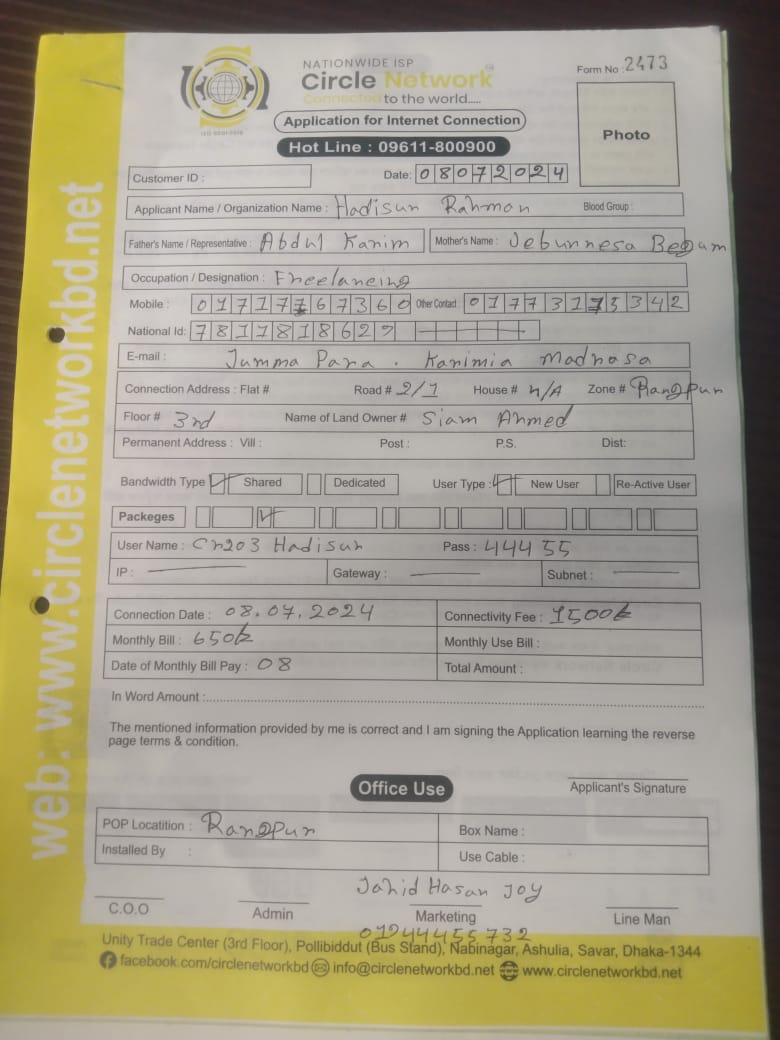 NATIONWIDE ISP
Circle Network
Connected to the world.....
ISO 9001:2015
Form No : 2473
Application for Internet Connection
Hot Line : 09611-800900
Photo
Customer ID :
Date: 08072024
Applicant Name / Organization Name : Hadisur Rahman Blood Group :
Father's Name / Representative : Abdul Karim Mother's Name : Jebunnesa Begum
Occupation / Designation : Freelancing
Mobile : 01717767360 Other Contact : 01773175342
National Id: 7811818629
E-mail : Jumma Para . Karimia Madrasa
Connection Address : Flat # Road # 2/1 House # n/A Zone # Rangpur
Floor # 3rd Name of Land Owner # Siam Ahmed
Permanent Address : Vill : Post : P.S. Dist:
Bandwidth Type Shared Dedicated User Type : New User Re-Active User
Packeges
User Name : Cr203 Hadisur Pass : 44455
IP : Gateway : Subnet :
Connection Date : 08.07.2024 Connectivity Fee : 1500
Monthly Bill : 650 Monthly Use Bill :
Date of Monthly Bill Pay : 08 Total Amount :
In Word Amount :
The mentioned information provided by me is correct and I am signing the Application learning the reverse
page terms & condition.
Office Use
Applicant's Signature
POP Locatition : Rangpur Box Name :
Installed By : Use Cable :
Jahid Hasan Joy
C.O.O Admin Marketing Line Man
Unity Trade Center (3rd Floor), Pollibiddut (Bus Stand), Nabinagar, Ashulia, Savar, Dhaka-1344
facebook.com/circlenetworkbd info@circlenetworkbd.net www.circlenetworkbd.net
web: www.circlenetworkbd.net